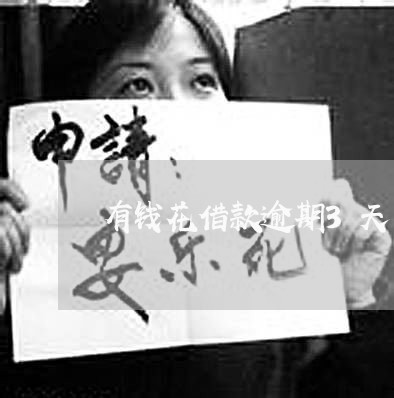 申請：
有钱花借款逾期3 天
乐死